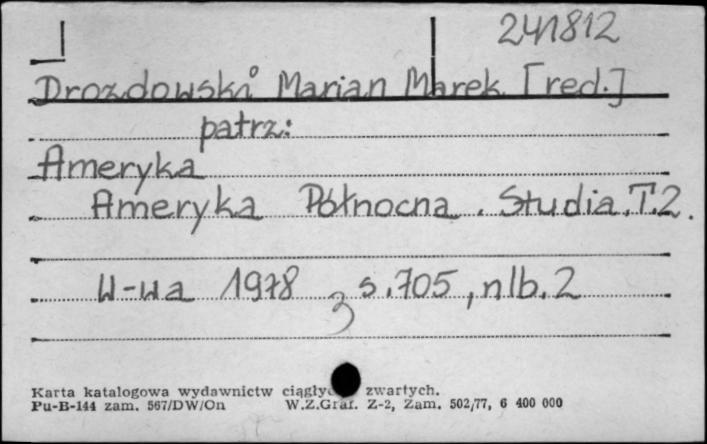 241812
Drozdowski Marian Marek [red.]
patrz:
Ameryka
Ameryka Północna. Studia. T.2.
W-wa 1978 s.705, nlb. 2
3
Karta katalogowa wydawnictw zwartych.
Pu-B-144 zam. 567/DW/On W.Z.Graf. Z-2, Zam. 502/77, 6 400 000